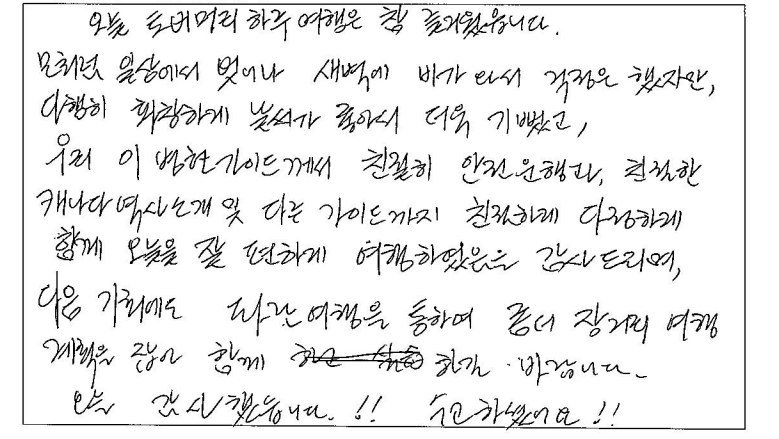 오늘 토버머리 하루 여행은 참 즐거웠읍니다.
모처럼 일상에서 벗어나 새벽에 비가 와서 걱정은 했지만,
다행히 화창하게 날씨가 좋아서 더욱 기뻤고,
우리 이 범헌 가이드께서 친절히 안전운행과, 친절한
캐나다 역사소개 및 다른 가이드까지 친절하게 다정하게
함께 오늘을 잘 편하게 여행하였음을 감사드리며,
다음 기회에도 파란여행을 통하여 좀더 장거리 여행
계획을 잡아 함께 하길 바랍니다.
오늘 감사했읍니다. !! 수고하셨어요 !!